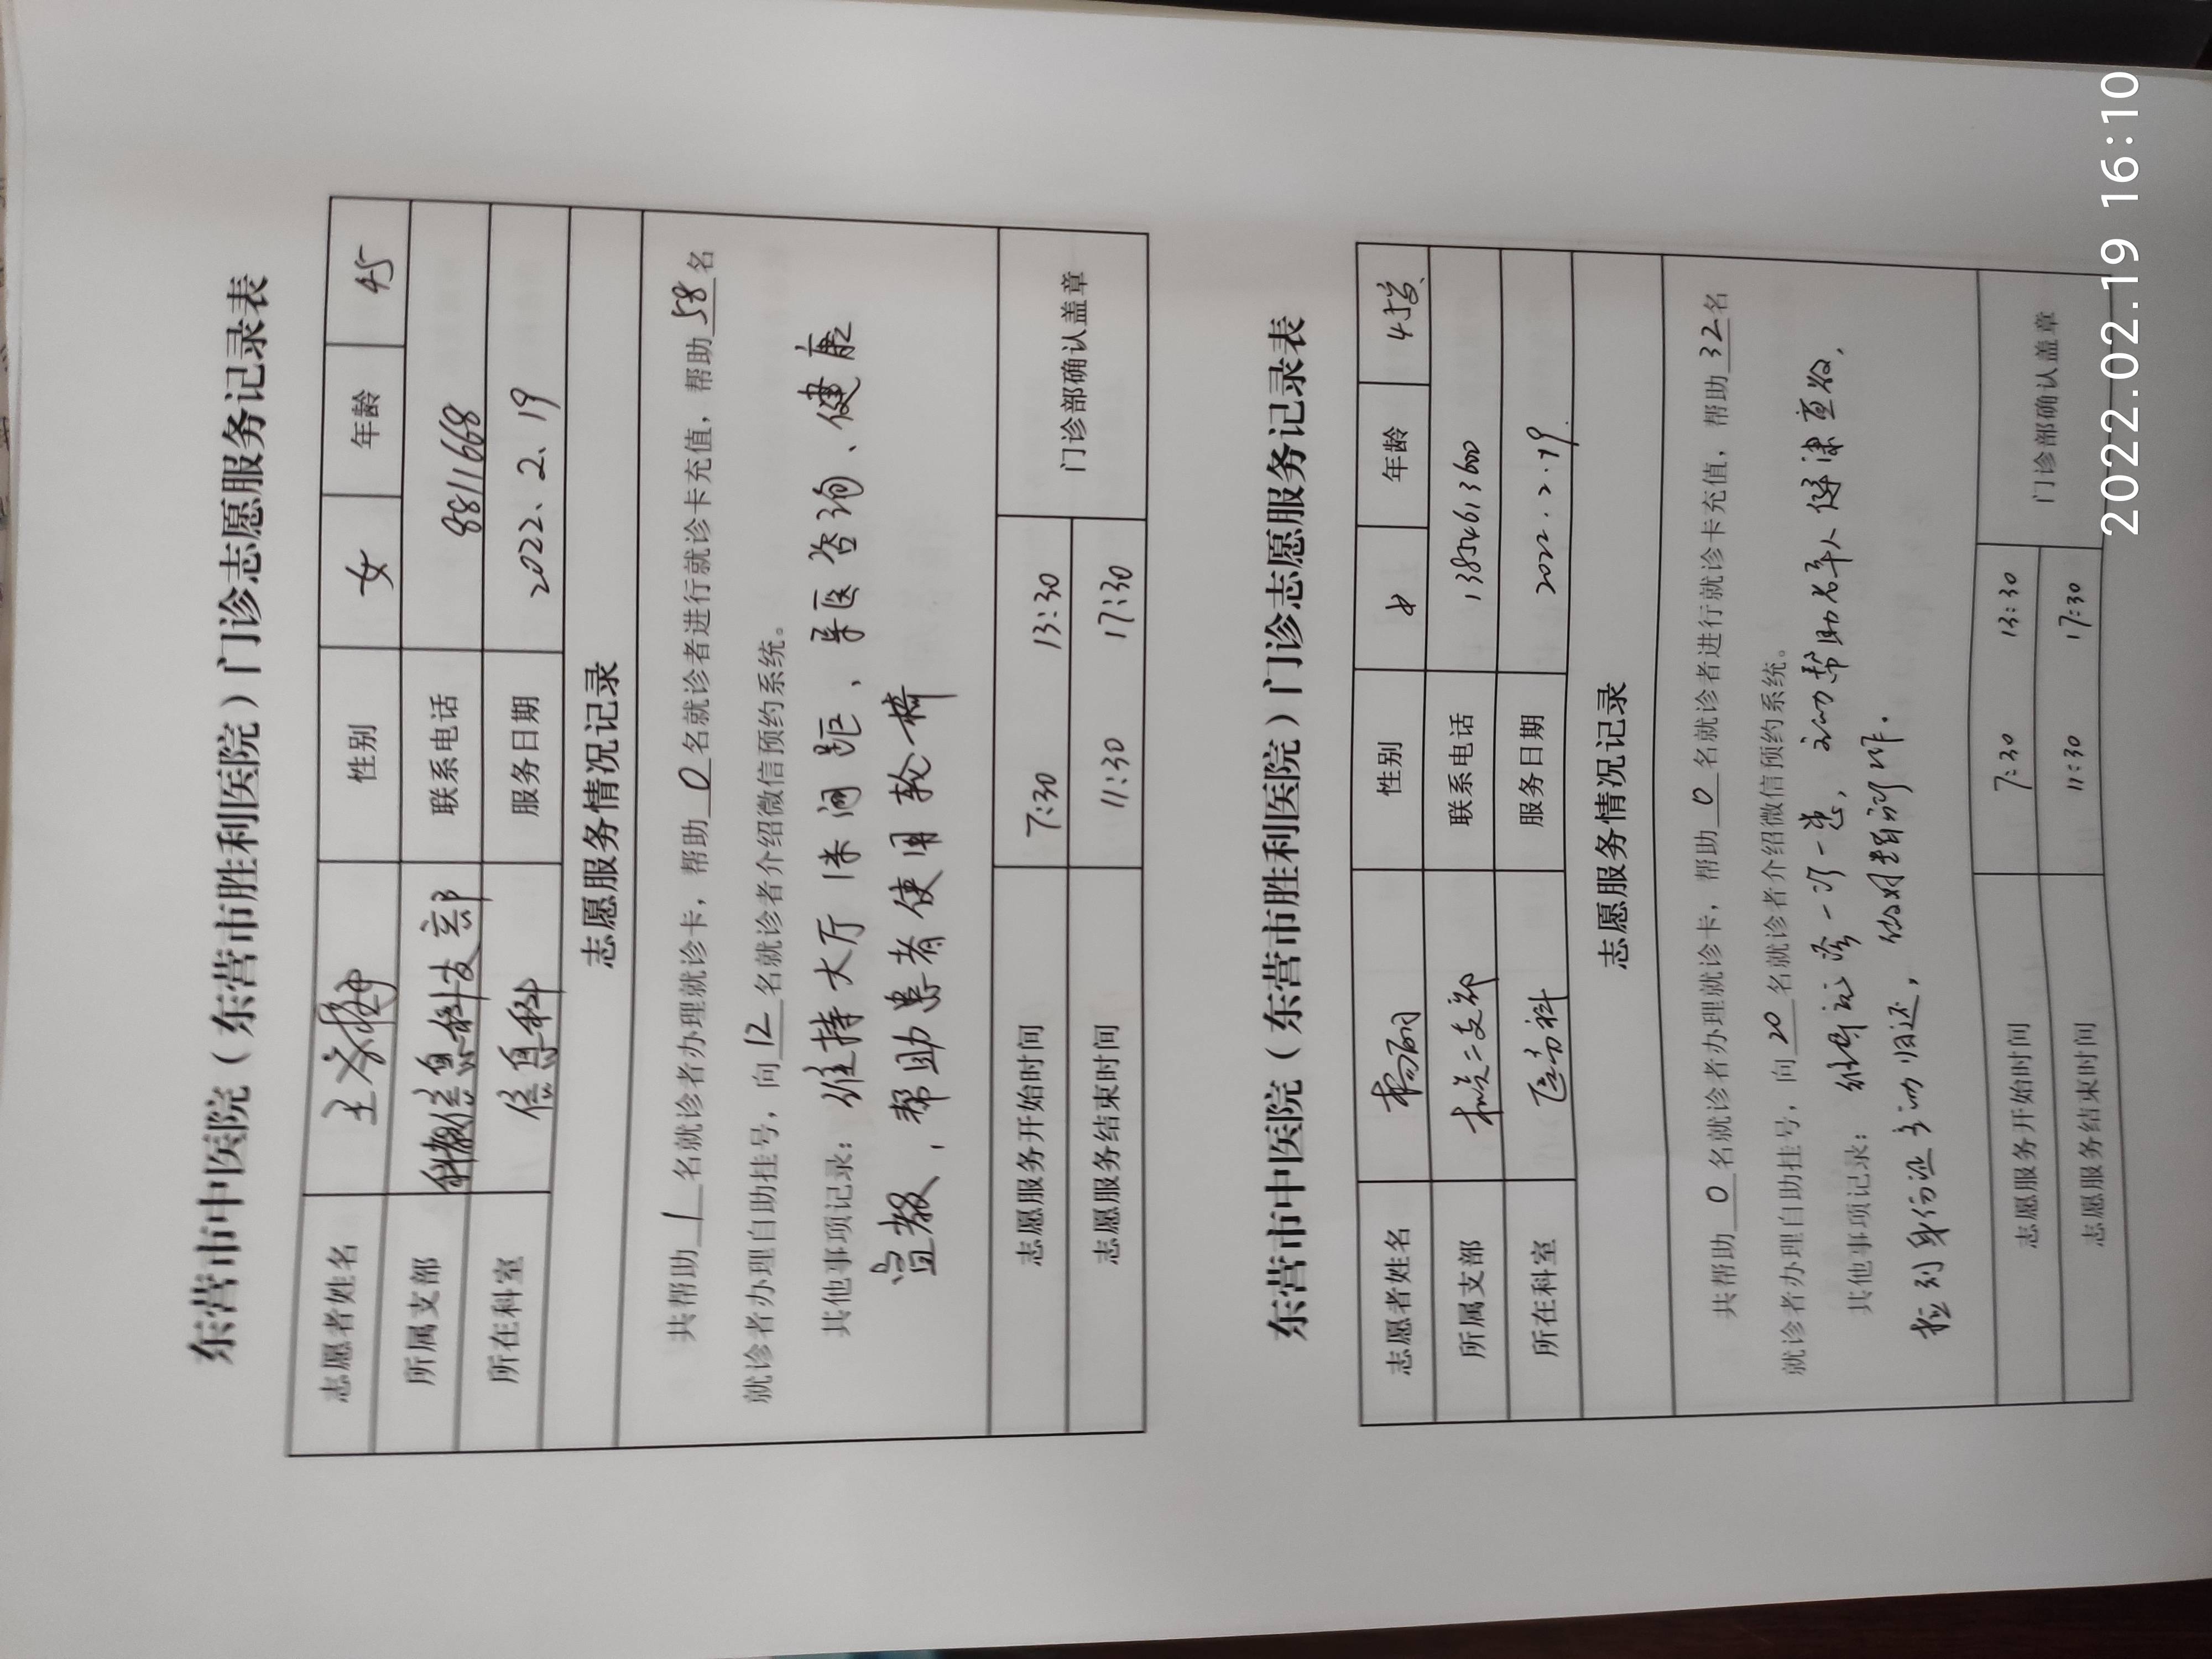 东营市中医院（东营市胜利医院）门诊志愿服务记录表
志愿者姓名 王 性别 女 年龄 45
所属支部 科教信息科支部 联系电话 8811668
所在科室 信息科 服务日期 2022.2.19
志愿服务情况记录
共帮助 1 名就诊者办理就诊卡，帮助 0 名就诊者进行就诊卡充值，帮助 58 名
就诊者办理自助挂号，向 12 名就诊者介绍微信预约系统。
其他事项记录：维持大厅1米间距、导医咨询、健康
宣教、帮助患者使用轮椅
志愿服务开始时间 7:30 13:30 门诊部确认盖章
志愿服务结束时间 11:30 17:30
东营市中医院（东营市胜利医院）门诊志愿服务记录表
志愿者姓名 杨丽 性别 女 年龄 45岁
所属支部 机关二支部 联系电话 13854613600
所在科室 医务科 服务日期 2022.2.19.
志愿服务情况记录
共帮助 0 名就诊者办理就诊卡，帮助 0 名就诊者进行就诊卡充值，帮助 32 名
就诊者办理自助挂号，向 20 名就诊者介绍微信预约系统。
其他事项记录：维持 一 一患，主动帮助老年人 健康 ，
捡到身份证主动归还，
志愿服务开始时间 7:30 13:30 门诊部确认盖章
志愿服务结束时间 11:30 17:30
2022.02.19 16:10